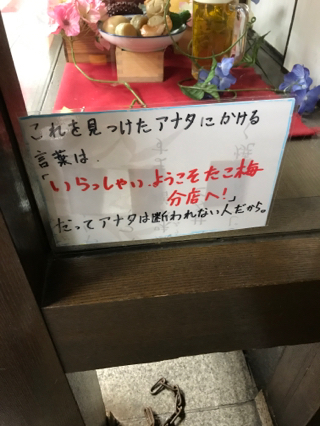 これを見つけたアナタにかける
言葉は、
「いらっしゃい、ようこそたこ梅
分店へ!」
だってアナタは断われない人だから。